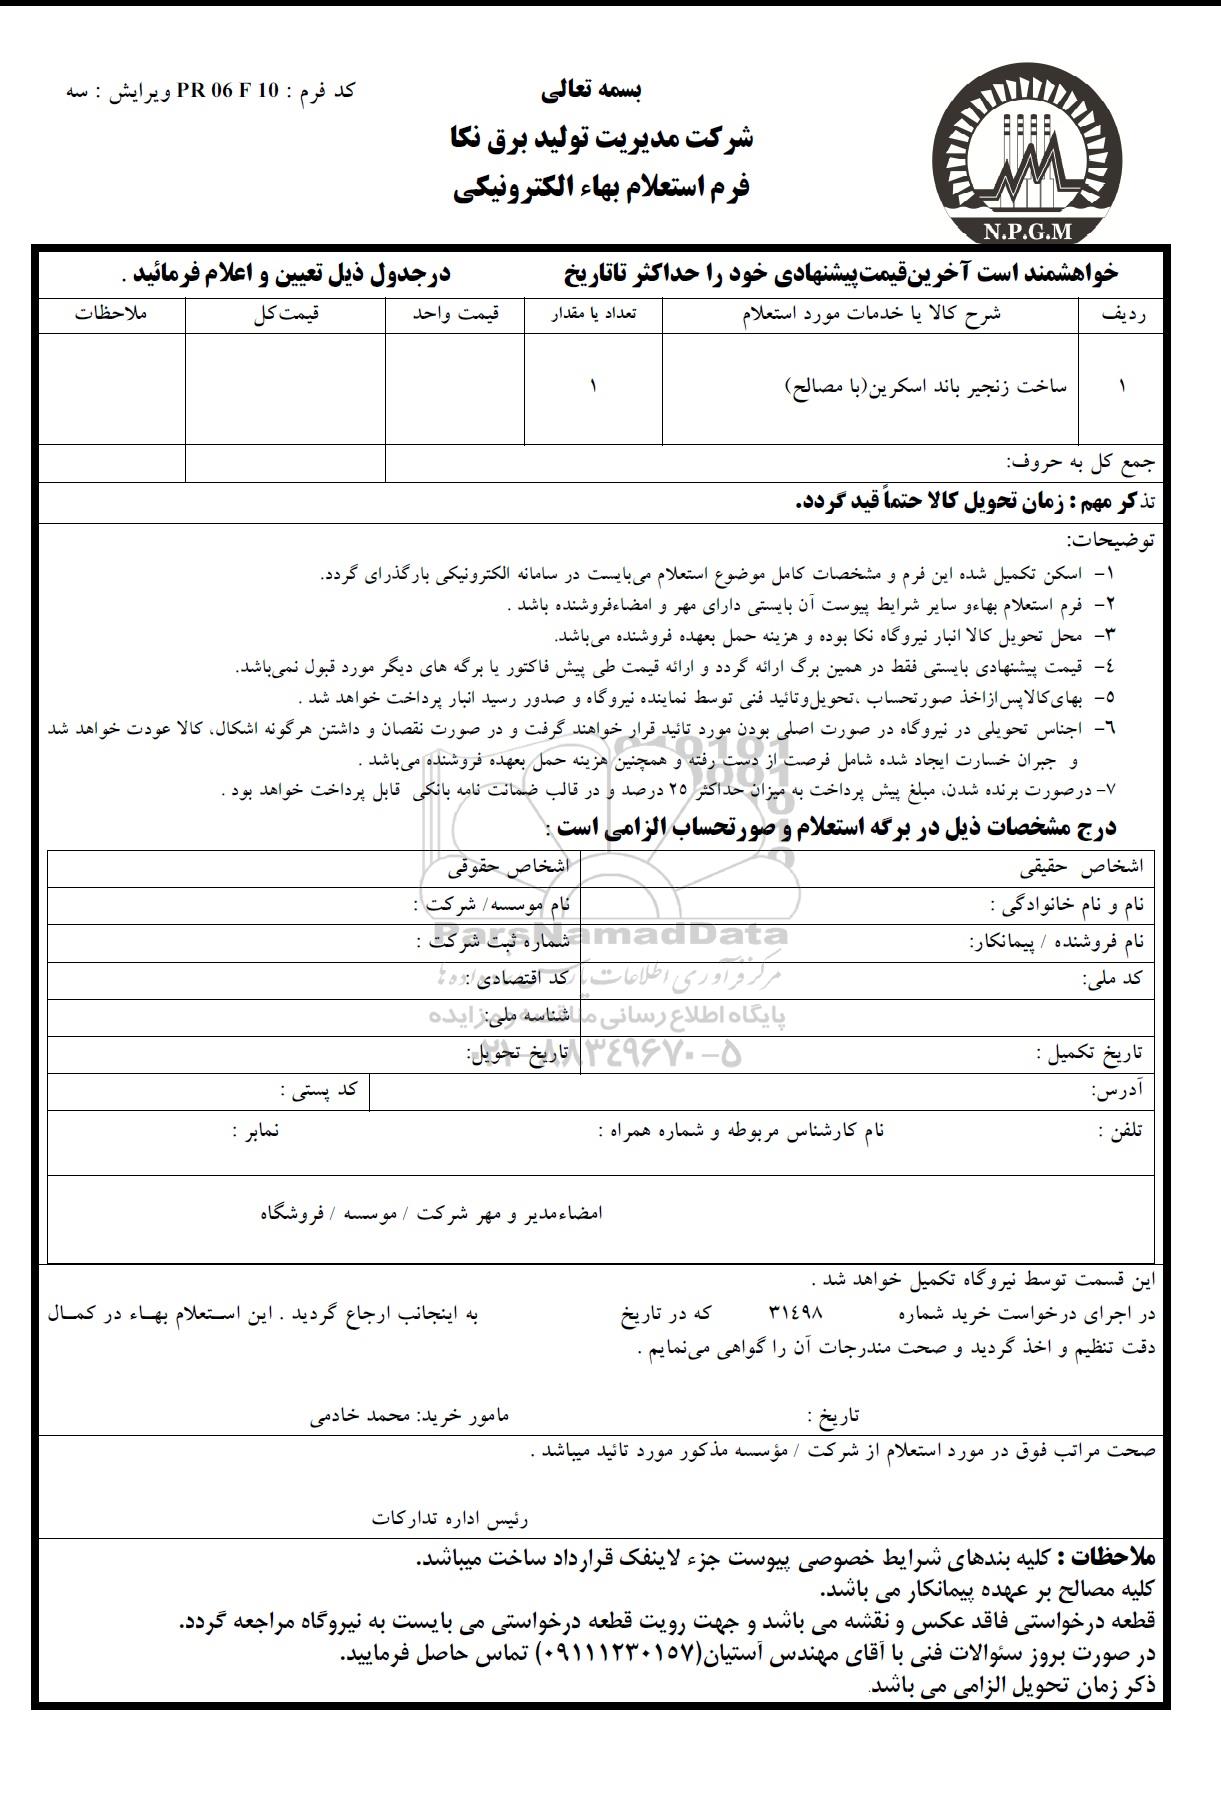 بسمه تعالی
کد فرم : PR 06 F 10 ویرایش : سه
شرکت مدیریت تولید برق نکا
فرم استعلام بهاء الکترونیکی
N.P.G.M
خواهشمند است آخرین‌قیمت‌پیشنهادی خود را حداکثر تاتاریخ درجدول ذیل تعیین و اعلام فرمائید .
ردیف شرح کالا یا خدمات مورد استعلام تعداد یا مقدار قیمت واحد قیمت‌کل ملاحظات
۱ ساخت زنجیر باند اسکرین(با مصالح) ۱
جمع کل به حروف:
تذکر مهم : زمان تحویل کالا حتماً قید گردد.
توضیحات:
۱- اسکن تکمیل شده این فرم و مشخصات کامل موضوع استعلام می‌بایست در سامانه الکترونیکی بارگذرای گردد.
۲- فرم استعلام بهاءو سایر شرایط پیوست آن بایستی دارای مهر و امضاءفروشنده باشد .
۳- محل تحویل کالا انبار نیروگاه نکا بوده و هزینه حمل بعهده فروشنده می‌باشد.
۴- قیمت پیشنهادی بایستی فقط در همین برگ ارائه گردد و ارائه قیمت طی پیش فاکتور یا برگه های دیگر مورد قبول نمی‌باشد.
۵- بهای‌کالاپس‌ازاخذ صورتحساب ،تحویل‌وتائید فنی توسط نماینده نیروگاه و صدور رسید انبار پرداخت خواهد شد .
۶- اجناس تحویلی در نیروگاه در صورت اصلی بودن مورد تائید قرار خواهند گرفت و در صورت نقصان و داشتن هرگونه اشکال، کالا عودت خواهد شد
و جبران خسارت ایجاد شده شامل فرصت از دست رفته و همچنین هزینه حمل بعهده فروشنده می‌باشد .
۷- درصورت برنده شدن، مبلغ پیش پرداخت به میزان حداکثر ۲۵ درصد و در قالب ضمانت نامه بانکی قابل پرداخت خواهد بود .
درج مشخصات ذیل در برگه استعلام و صورتحساب الزامی است :
اشخاص حقیقی اشخاص حقوقی
نام و نام خانوادگی : نام موسسه/ شرکت :
ParsNamadData
نام فروشنده / پیمانکار: شماره ثبت شرکت :
کد ملی: کد اقتصادی :
شناسه ملی:
پایگاه اطلاع رسانی مناقصه و مزایده
تاریخ تکمیل : تاریخ تحویل:
۰۲۱-۸۸۳۴۹۶۷۰-۵
آدرس: کد پستی :
تلفن : نام کارشناس مربوطه و شماره همراه : نمابر :
امضاءمدیر و مهر شرکت / موسسه / فروشگاه
این قسمت توسط نیروگاه تکمیل خواهد شد .
در اجرای درخواست خرید شماره ۳۱۴۹۸ که در تاریخ به اینجانب ارجاع گردید . این استعلام بهاء در کمال
دقت تنظیم و اخذ گردید و صحت مندرجات آن را گواهی می‌نمایم .
تاریخ : مامور خرید: محمد خادمی
صحت مراتب فوق در مورد استعلام از شرکت / مؤسسه مذکور مورد تائید میباشد .
رئیس اداره تدارکات
ملاحظات : کلیه بندهای شرایط خصوصی پیوست جزء لاینفک قرارداد ساخت میباشد.
کلیه مصالح بر عهده پیمانکار می باشد.
قطعه درخواستی فاقد عکس و نقشه می باشد و جهت رویت قطعه درخواستی می بایست به نیروگاه مراجعه گردد.
در صورت بروز سئوالات فنی با آقای مهندس آستیان(۰۹۱۱۱۲۳۰۱۵۷) تماس حاصل فرمایید.
ذکر زمان تحویل الزامی می باشد.